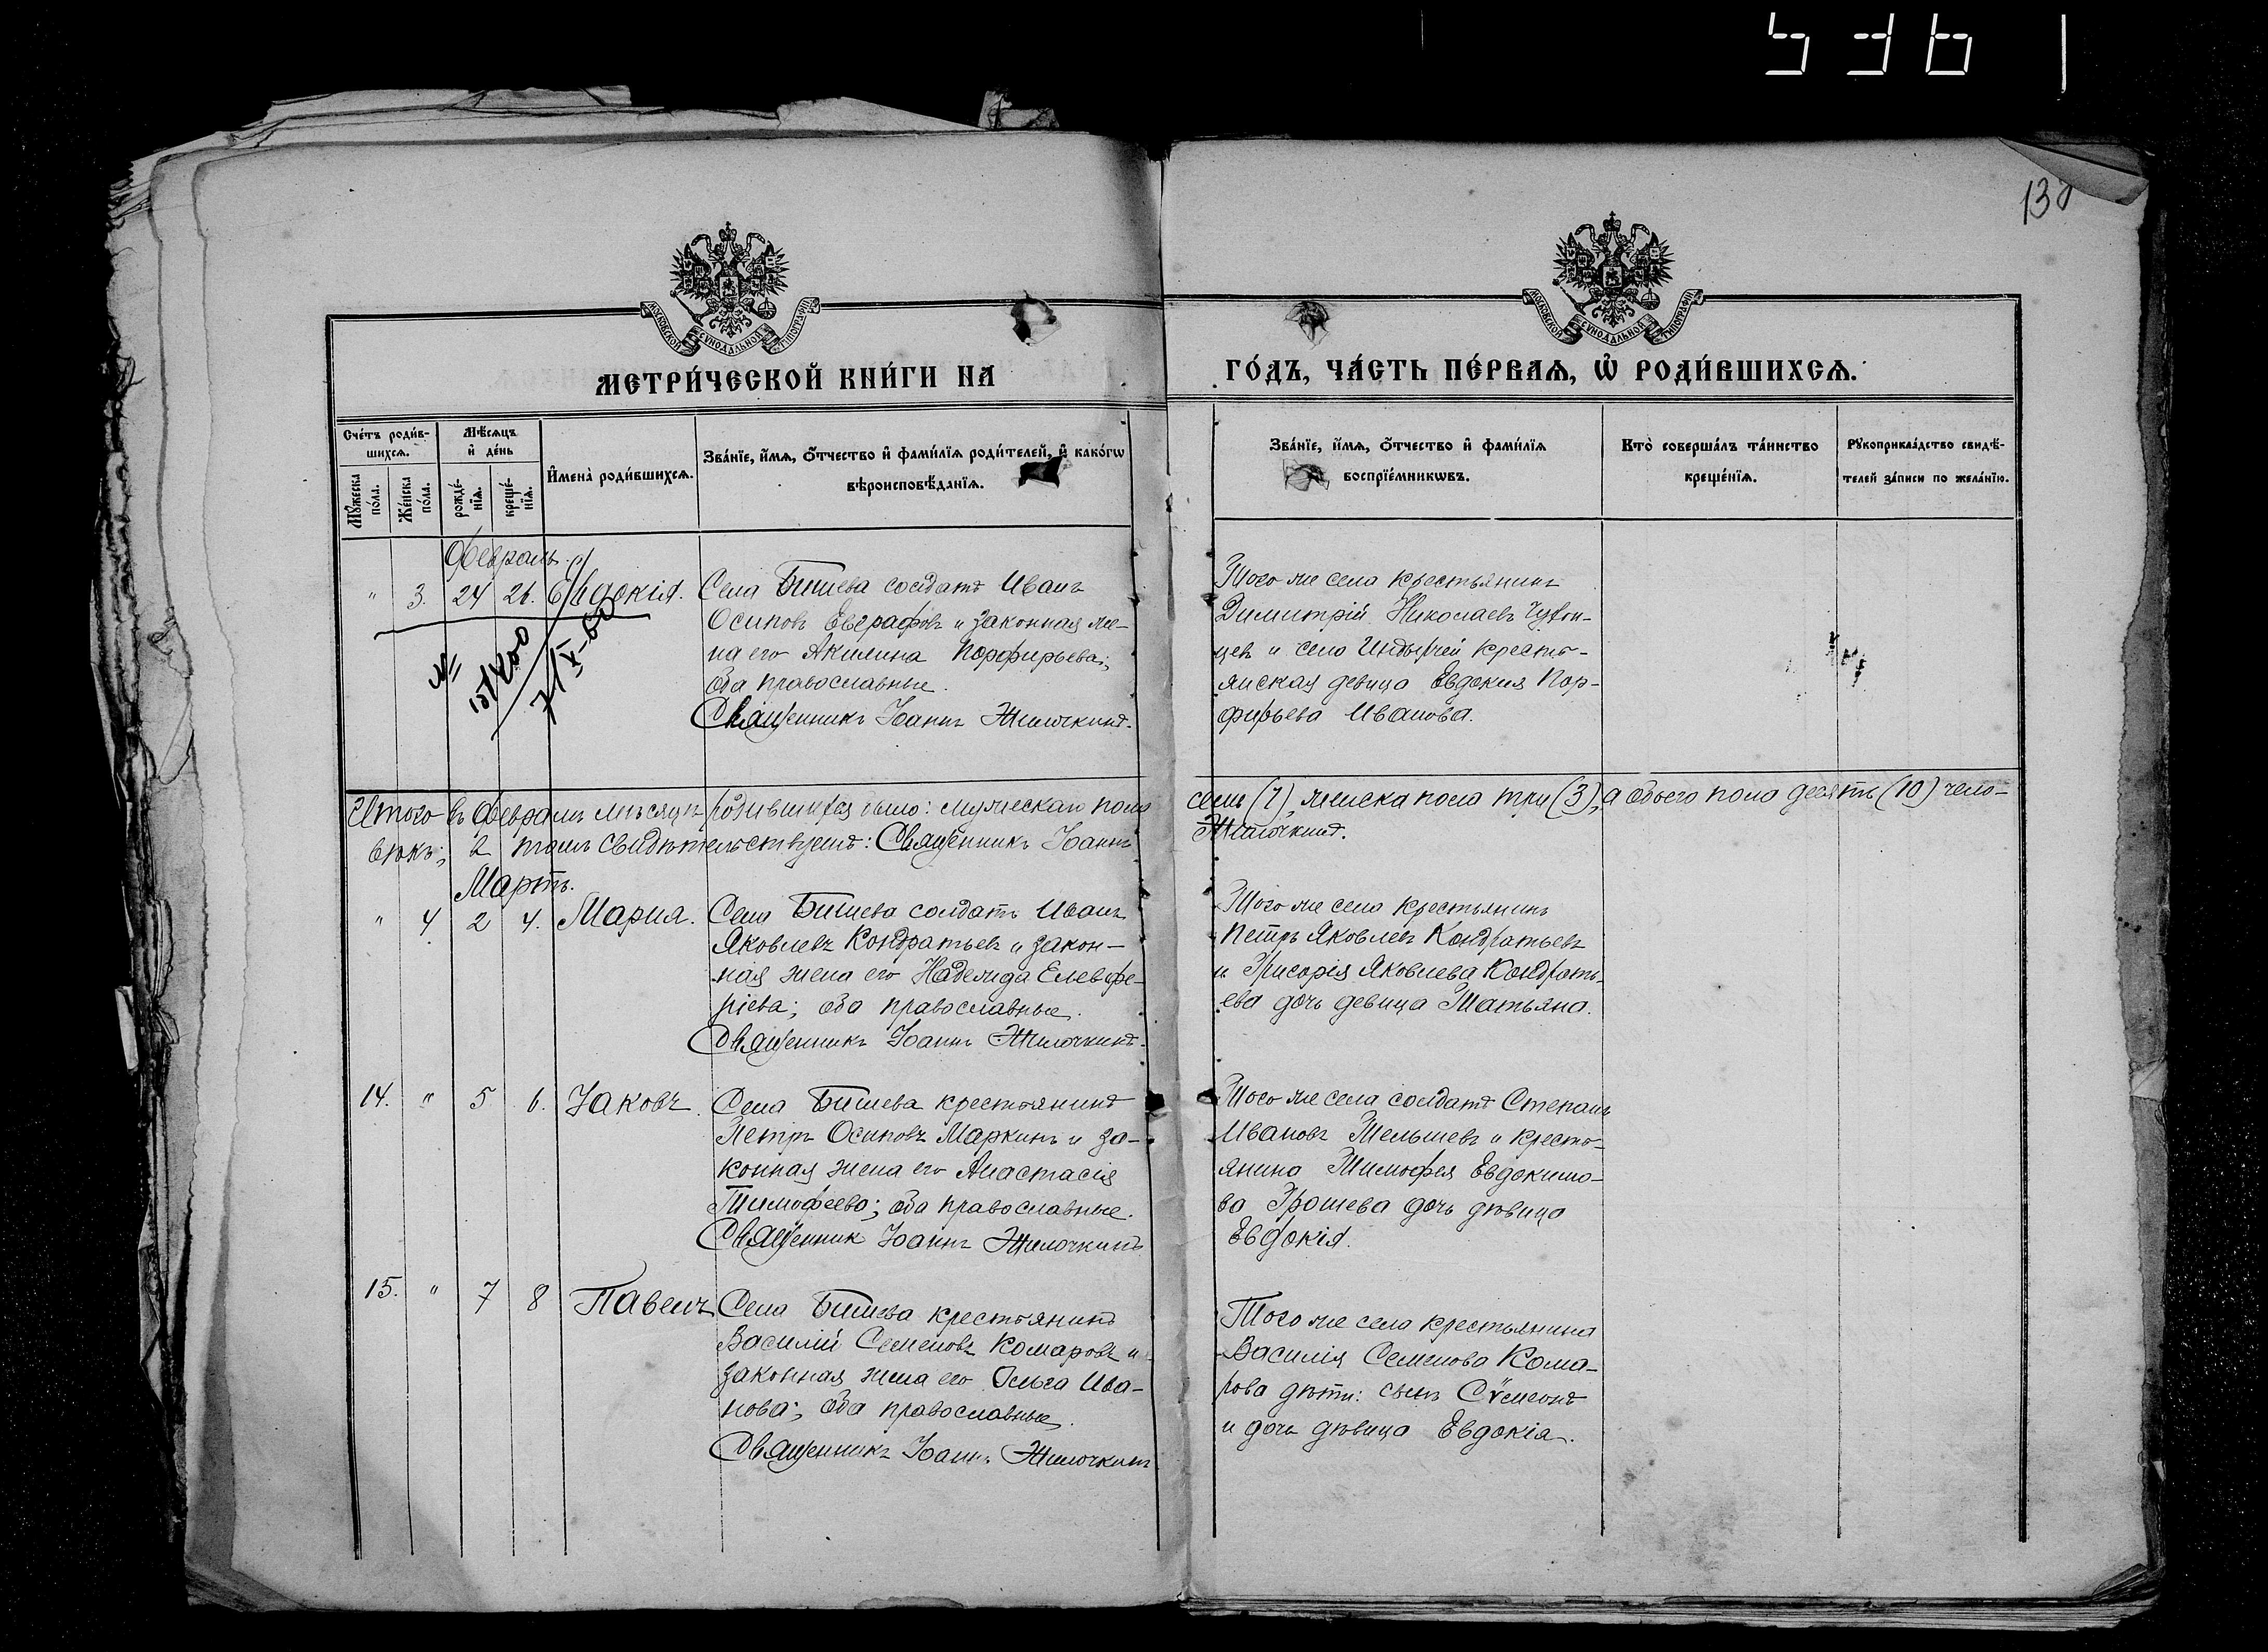 5361
138
МОСКОВСКОЙ СѴНОДАЛЬНОЙ ТИПОГРАФІИ
МОСКОВСКОЙ СѴНОДАЛЬНОЙ ТИПОГРАФІИ
МЕТРИ́ЧЕСКОЙ КНИ́ГИ НА
ГО́ДЪ, ЧА́СТЬ ПЕ́РВАѦ, Ѽ РОДИ́ВШИХСѦ.
Сче́тъ роди́вшихсѧ.
Мꙋ́жеска по́ла.
Же́нска по́ла.
Мѣ́сѧцъ и҆ де́нь
рожде́нїѧ.
креще́нїѧ.
И҆мена̀ роди́вшихсѧ.
Зва́нїе, и҆́мѧ, ѻ҆́тчество и҆ фами́лїѧ роди́телей, и҆ како́гѡ
вѣроисповѣ́данїѧ.
Зва́нїе, и҆́мѧ, ѻ҆́тчество и҆ фами́лїѧ
воспрїе́мникѡвъ.
Кто̀ соверша́лъ та́инство
креще́нїѧ.
Рꙋкоприкла́дство свидѣ́-
телей за́писи по жела́нїю.
Февраль
" 3. 24 26. Евдокія.
Села Бишева солдатъ Иванъ
Осиповъ Евграфовъ и законная же-
на его Акилина Порфирьева;
оба православные.
Священникъ Іоаннъ Жилочкинъ.
Того же села крестьянинъ
Димитрій Николаевъ
цевъ и села крестья-
янская девица Евдокия Пор-
фирьева Иванова.
№
Итого въ Феврале месяце родившихся было: мужеска пола семь (7), женска пола три (3), а обоего пола десять (10) чело-
векъ; в томъ свидетельствуетъ: Священникъ Іоаннъ Жилочкинъ.
Мартъ.
" 4 2 4. Мария.
Села Бишева солдатъ Иванъ
Яковлевъ Кондратьевъ и закон-
ная жена его Надежда Елевфе-
ріева; оба православные.
Священникъ Іоаннъ Жилочкинъ.
Того же села крестьянинъ
Петръ Яковлевъ Кондратьевъ
и Григорія Яковлева Кондрать-
ева дочь девица Татьяна.
14. " 5 6. Іаковъ.
Села Бишева крестьянинъ
Петръ Осиповъ Маркинъ и за-
конная жена его Анастасія
Тимофеева; оба православные.
Священник Іоаннъ Жилочкинъ
Того же села солдатъ Степанъ
Ивановъ Телышевъ и кресть-
янина Тимофея Евдокимо-
ва Грошева дочь дѣвица
Евдокія.
15. " 7 8 Павелъ
Села Бишева крестьянинъ
Василій Семеновъ Комаровъ и
законная жена его Ольга Ива-
нова; оба православные.
Священникъ Іоаннъ Жилочкинъ
Того же села крестьянина
Василія Семенова Кома-
рова дѣти: сынъ Сѵмеонъ
и дочь дѣвица Евдокія.